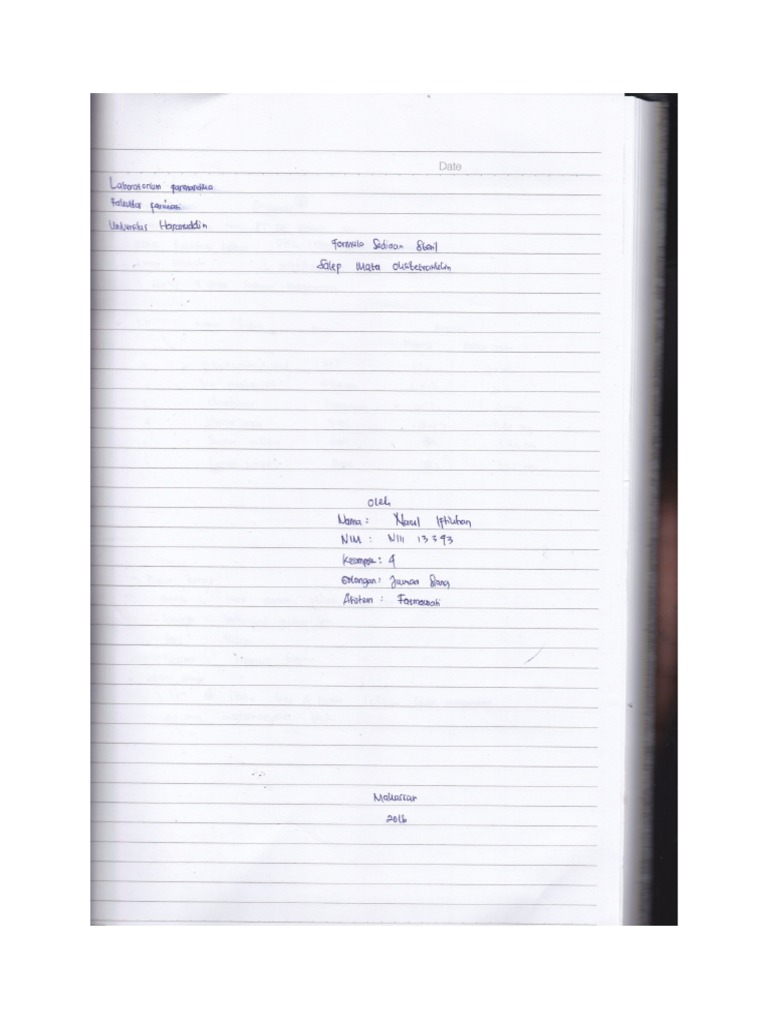 Date
Laboratorium farmasetika
Fakultas farmasi
Universitas Hasanuddin
Formula Sediaan Steril
Salep Mata Oksitetrasiklin
Oleh
Nama : Nurul
NIM : N111 13 393
Kelompok : 4
Golongan : Jumat Siang
Asisten :
Makassar
2016